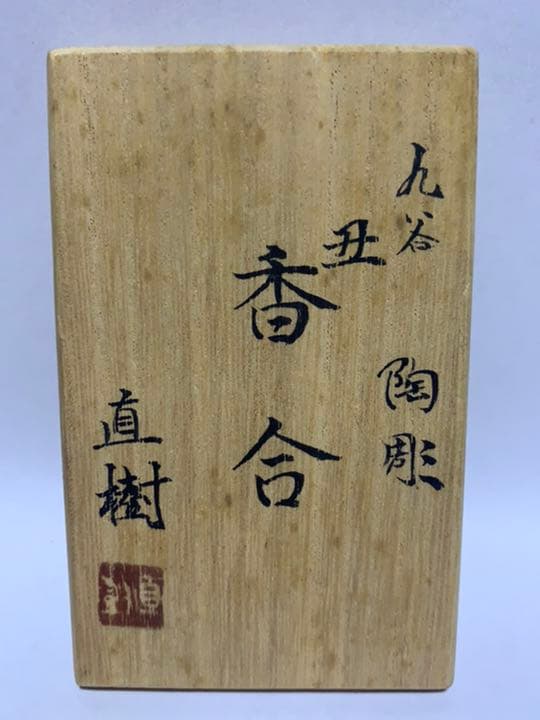 九谷 陶彫
丑
香合
直樹